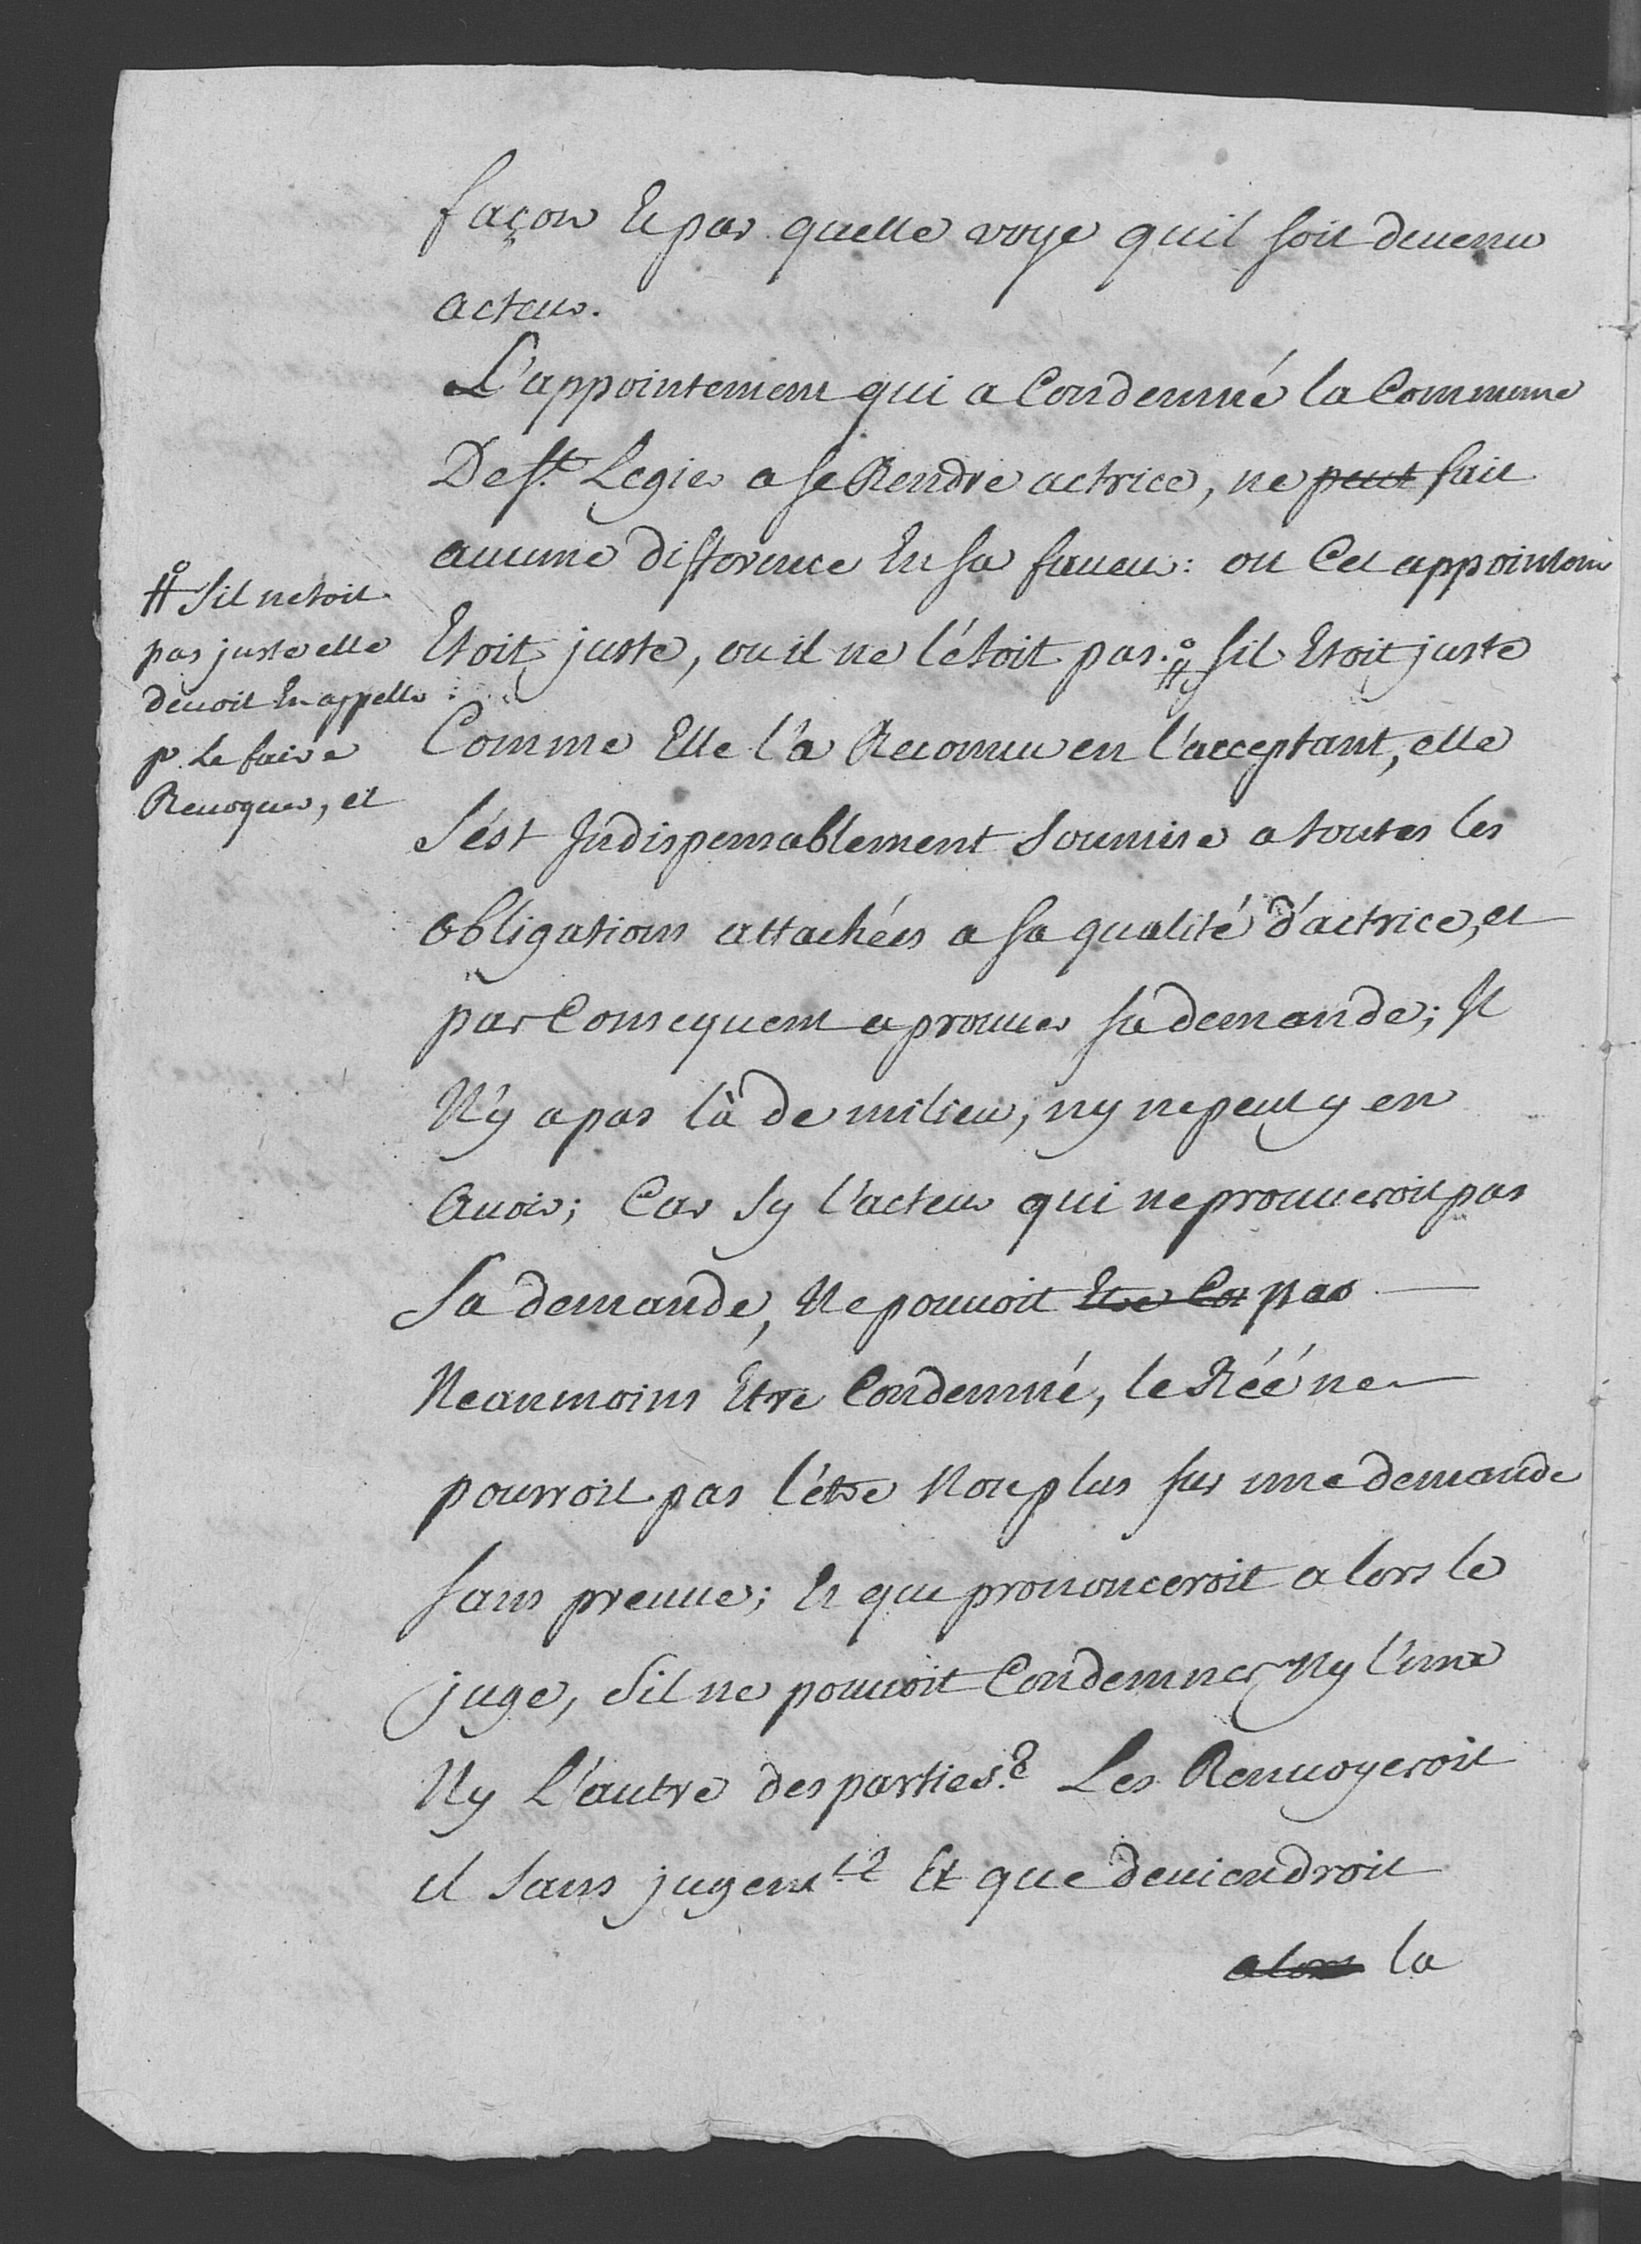 façon Et par quelle voye quil soit devenu
acteur.
L'appointement qui a Condemné la Commune
De St. Legier a se Rendre actrice, ne peut fait
aucune difference En sa faveur: ou Cet appointem
Etoit juste, ou il ne l'étoit pas. # sil Etoit juste
# Sil netoit
pas juste elle
devoit En appeller
pr le faire
Revoquer, et
Comme Elle l'a Reconnu en l'acceptant, elle
S'ést Indispensablement Soumise a toutes les
obligations attachées a sa qualité d'actrice, et
par Consequent a prouver sa demande; Il
N'y a pas là de milieu, ny ne peut y en
Avoir; Car sy l'acteur qui ne prouveroit pas
Sa demande, Ne pouvoit Etre Con pas
Neanmoins Etre Condemné, le Réé ne
pourroit pas l'étre Non plus sur une demande
sans preuve; Et que prononceroit alors le
juge, Sil ne pouvoit Condemner Ny l'une
Ny L'autre des parties? Les Renvoyeroit
il Sans jugemt? Et que deviendroit
alors la